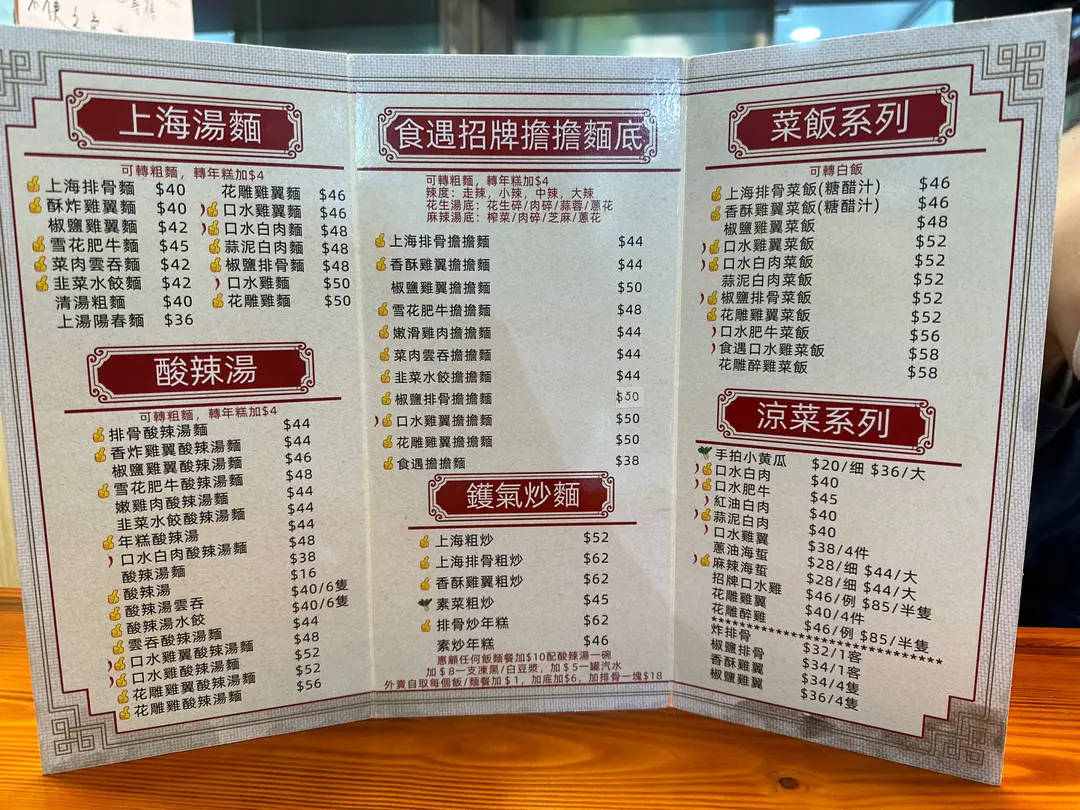 上海湯麵
可轉粗麵，轉年糕加$4
上海排骨麵 $40
酥炸雞翼麵 $40
椒鹽雞翼麵 $42
雪花肥牛麵 $45
菜肉雲吞麵 $42
韭菜水餃麵 $42
清湯粗麵 $40
上湯陽春麵 $36
花雕雞翼麵 $46
口水雞翼麵 $46
口水白肉麵 $48
蒜泥白肉麵 $48
椒鹽排骨麵 $48
口水雞麵 $50
花雕雞麵 $50
酸辣湯
可轉粗麵，轉年糕加$4
排骨酸辣湯麵 $44
香炸雞翼酸辣湯麵 $44
椒鹽雞翼酸辣湯麵 $46
雪花肥牛酸辣湯麵 $48
嫩雞肉酸辣湯麵 $44
韭菜水餃酸辣湯麵 $44
年糕酸辣湯 $44
口水白肉酸辣湯麵 $48
酸辣湯麵 $38
酸辣湯 $16
酸辣湯雲吞 $40/6隻
酸辣湯水餃 $40/6隻
雲吞酸辣湯麵 $44
口水雞翼酸辣湯麵 $48
口水雞酸辣湯麵 $52
花雕雞翼酸辣湯麵 $52
花雕雞酸辣湯麵 $56
食遇招牌擔擔麵底
可轉粗麵，轉年糕加$4
辣度：走辣，小辣，中辣，大辣
花生湯底：花生碎/肉碎/蒜蓉/蔥花
麻辣湯底：榨菜/肉碎/芝麻/蔥花
上海排骨擔擔麵 $44
香酥雞翼擔擔麵 $44
椒鹽雞翼擔擔麵 $50
雪花肥牛擔擔麵 $48
嫩滑雞肉擔擔麵 $44
菜肉雲吞擔擔麵 $44
韭菜水餃擔擔麵 $44
椒鹽排骨擔擔麵 $50
口水雞翼擔擔麵 $50
花雕雞翼擔擔麵 $50
食遇擔擔麵 $38
鑊氣炒麵
上海粗炒 $52
上海排骨粗炒 $62
香酥雞翼粗炒 $62
素菜粗炒 $45
排骨炒年糕 $62
素炒年糕 $46
惠顧任何飯麵餐加$10配酸辣湯一碗
加＄8一支凍黑/白豆漿，加＄5一罐汽水
外賣自取每個飯/麵餐加＄1，加底加$6，加排骨一塊$18
菜飯系列
可轉白飯
上海排骨菜飯(糖醋汁) $46
香酥雞翼菜飯(糖醋汁) $46
椒鹽雞翼菜飯 $48
口水雞翼菜飯 $52
口水白肉菜飯 $52
蒜泥白肉菜飯 $52
椒鹽排骨菜飯 $52
花雕雞翼菜飯 $52
口水肥牛菜飯 $56
食遇口水雞菜飯 $58
花雕醉雞菜飯 $58
涼菜系列
手拍小黄瓜 $20/细 $36/大
口水白肉 $40
口水肥牛 $45
紅油白肉 $40
蒜泥白肉 $40
口水雞翼 $38/4件
蔥油海蜇 $28/细 $44/大
麻辣海蜇 $28/细 $44/大
招牌口水雞 $46/例 $85/半隻
花雕雞翼 $40/4件
花雕醉雞 $46/例 $85/半隻
******************************
炸排骨 $32/1客
椒鹽排骨 $34/1客
香酥雞翼 $34/4隻
椒鹽雞翼 $36/4隻